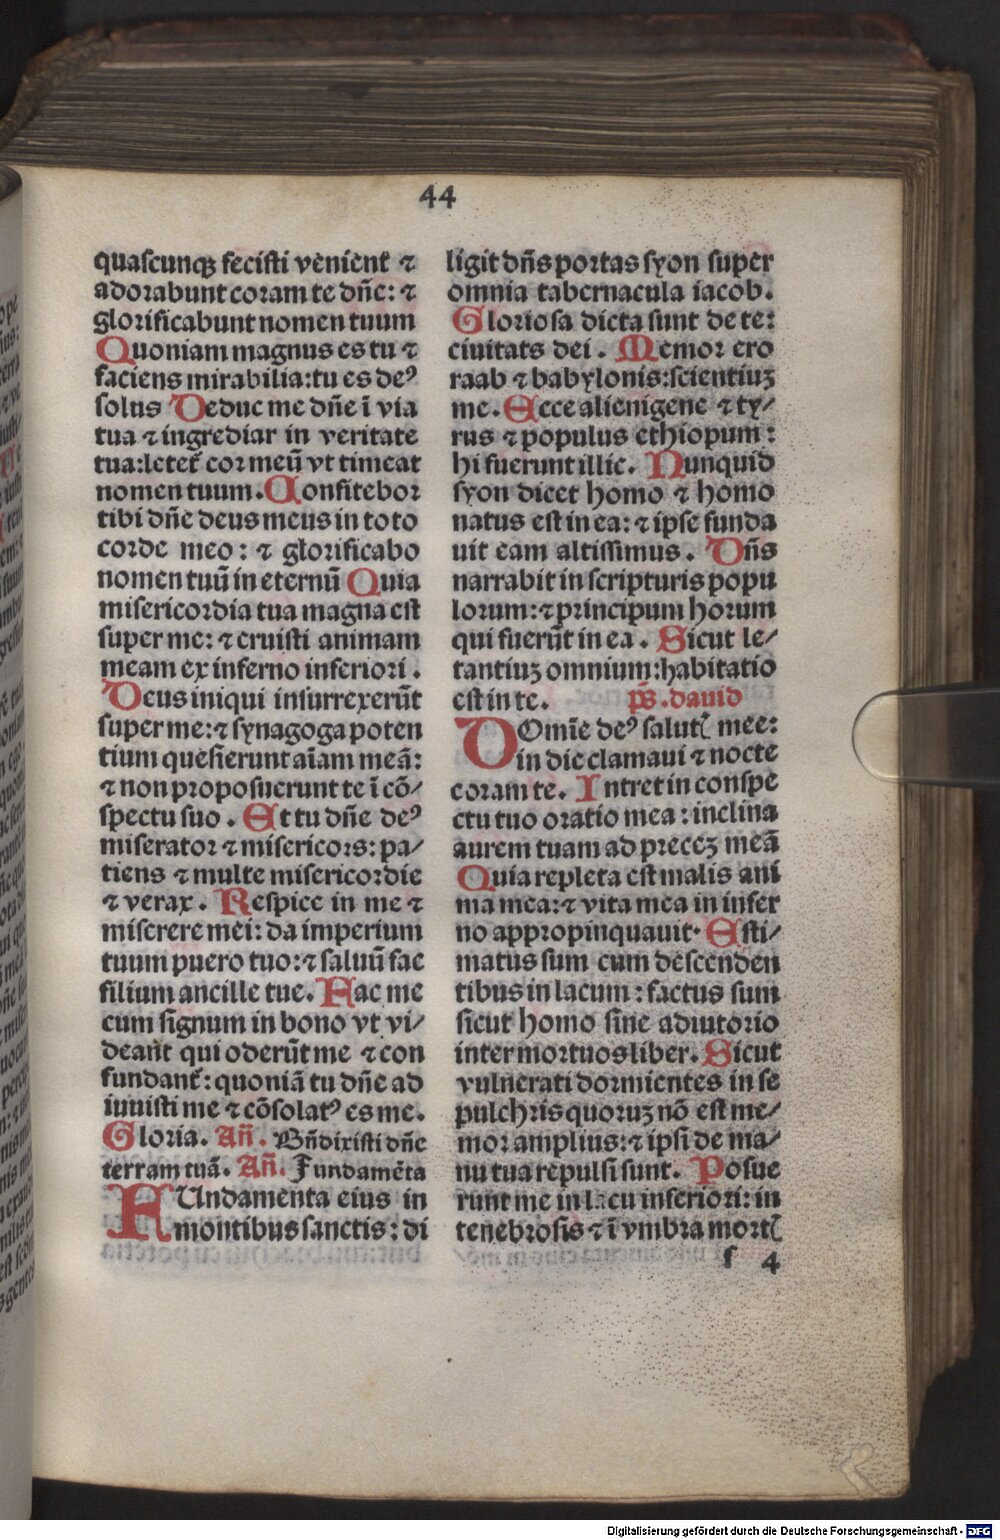 44
quascunqꝫ fecisti venient̃ ⁊
adorabunt coram te dñe: ⁊
glorificabunt nomen tuum
Quoniam magnus es tu ⁊
faciens mirabilia: tu es deꝰ
solus Deduc me dñe ĩ via
tua ⁊ ingrediar in veritate
tua: letet̃ cor meũ vt timeat
nomen tuum. Confitebor
tibi dñe deus meus in toto
corde meo: ⁊ glorificabo
nomen tuũ in eternũ Quia
misericordia tua magna est
super me: ⁊ eruisti animam
meam ex inferno inferiori.
Deus iniqui insurrexerũt
super me: ⁊ synagoga poten
tium quesierunt aĩam meã:
⁊ non proposuerunt te ĩ cõ/
spectu suo. Et tu dñe deꝰ
miserator ⁊ misericors: pa/
tiens ⁊ multe misericordie
⁊ verax. Respice in me ⁊
miserere mei: da imperium
tuum puero tuo: ⁊ saluũ fac
filium ancille tue. Fac me
cum signum in bono vt vi/
deant qui oderũt me ⁊ con
fundant̃: quoniã tu dñe ad
iuuisti me ⁊ cõsolatꝰ es me.
Gloria. Añ. Bñdixisti dñe
terram tuã. Añ. Fundamẽta
FUndamenta eius in
montibus sanctis: di
ligit dñs portas syon super
omnia tabernacula iacob.
Gloriosa dicta sunt de te:
ciuitats dei. Memor ero
raab ⁊ babylonis: scientiuꝫ
me. Ecce alienigene ⁊ ty/
rus ⁊ populus ethiopum:
hi fuerunt illic. Nunquid
syon dicet homo ⁊ homo
natus est in ea: ⁊ ipse funda
uit eam altissimus. Dñs
narrabit in scripturis popu
lorum: ⁊ principum horum
qui fuerũt in ea. Sicut le/
tantiuꝫ omnium: habitatio
est in te. p̃s. dauid
DOmĩe deꝰ salutꝭ mee:
in die clamaui ⁊ nocte
coram te. Intret in conspe
ctu tuo oratio mea: inclina
aurem tuam ad preceꝫ meã
Quia repleta est malis ani
ma mea: ⁊ vita mea in infer
no appropinquauit. Esti/
matus sum cum descenden
tibus in lacum: factus sum
sicut homo sine adiutorio
inter mortuos liber. Sicut
vulnerati dormientes in se
pulchris quoruꝫ nõ est me/
mor amplius: ⁊ ipsi de ma/
nu tua repulsi sunt. Posue
runt me in lacu inferiori: in
tenebrosis ⁊ ĩ vmbra mortꝭ
f 4
Digitalisierung gefördert durch die Deutsche Forschungsgemeinschaft - DFG